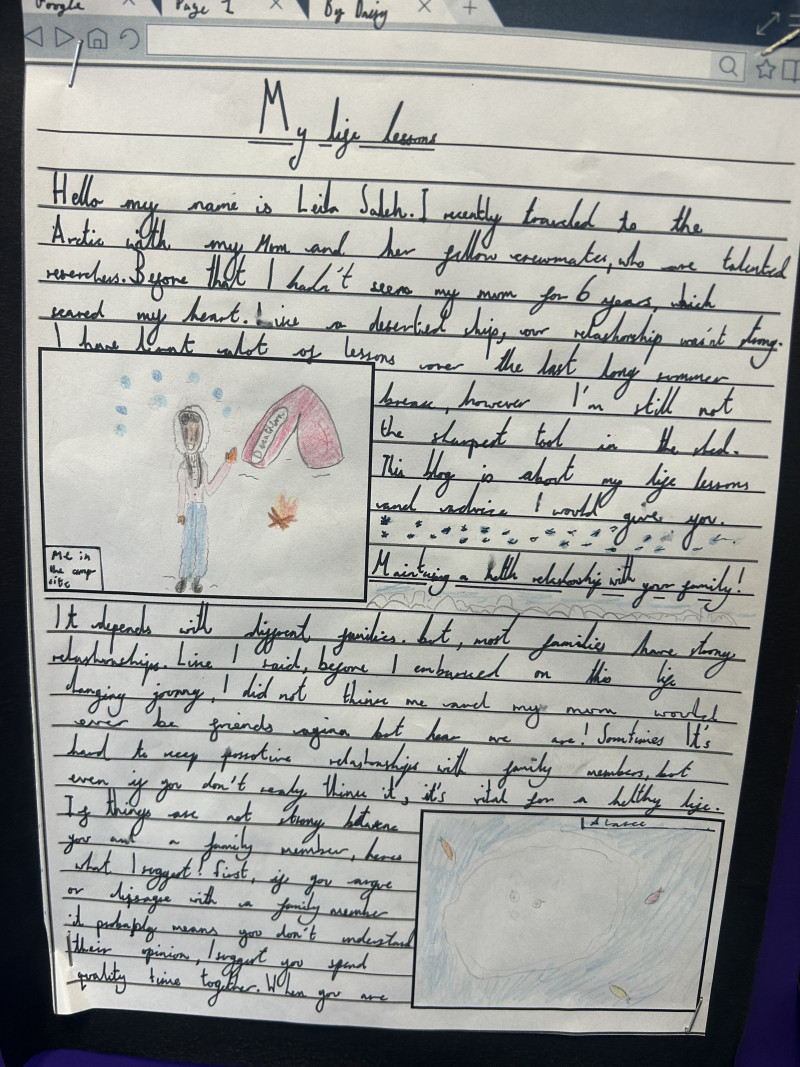 Google
Page 1
By Daisy
My life lessons
Hello my name is Leila Saleh. I recently traveled to the
Arctic with my Mom and her fellow crewmates, who are talented
reserchers. Before that I hadn't seen my mum for 6 years, which
scared my heart. Like a deserted ship, our relashorship wasn't strong.
I have lernt alot of lessons over the last long summer
break, however I'm still not
the sharpest tool in the shed.
This blog is about my life lessons
and advise I would give you.
Me in
the camp
site
Donation
Maintaing a helth relashonship with your family!
It depends with diffrent families. but, most families have strong
relashonships. Like I said, before I embarked on this life
changing jorony, I did not think me and my mum would
ever be friends agina but hear we are! Somtimes It's
hard to keep possotive relashonships with family members, but
even if you don't realy think it, it's vital for a helthy life.
If things are not strong betwene
you and a family member, heres
what I suggest! First, if you argue
or disagree with a family member
it probaply means you don't understand
their opinion, I suggest you spend
quality time together. When you are